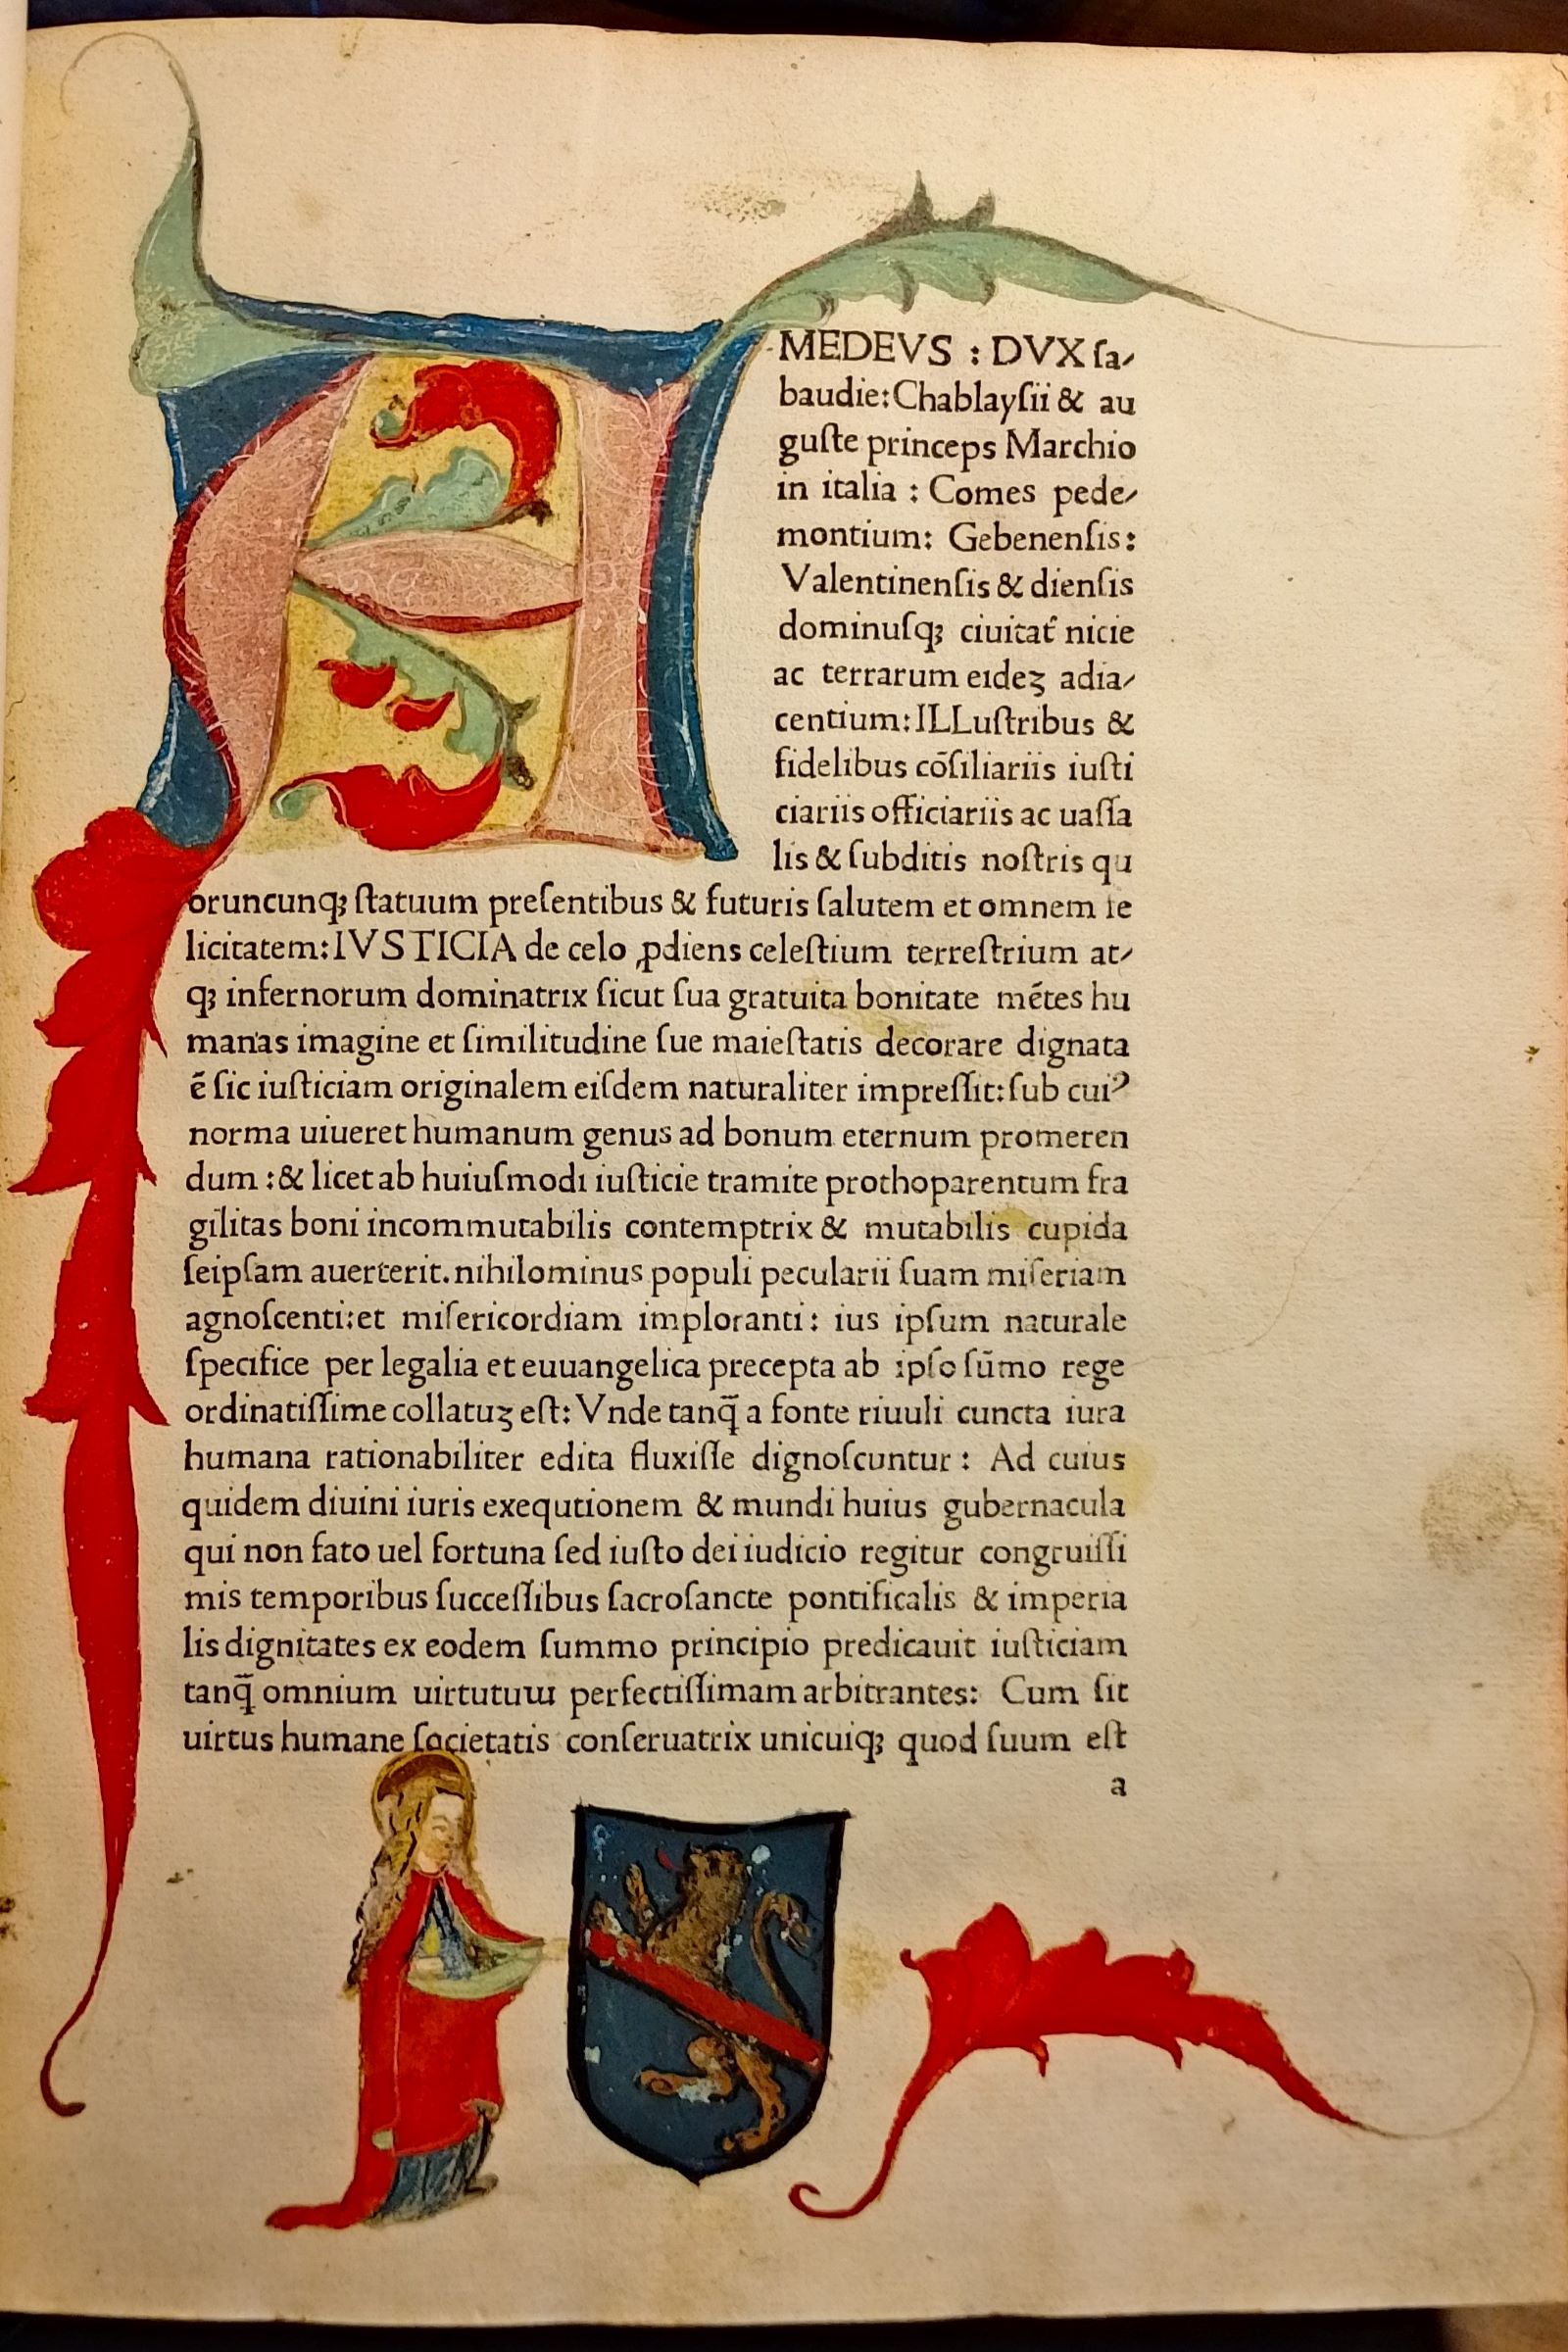 AMEDEVS : DVX ſa⸗
baudie: Chablayſii & au
guſte princeps Marchio
in italia : Comes pede⸗
montium: Gebenenſis:
Valentinenſis & dienſis
dominuſqꝫ ciuitat̄ nicie
ac terrarum eıdeꝫ adia⸗
centium: ILLuſtribus &
fidelibus cōſiliariis iuſti
ciariis officiariis ac uaſſa
lis & ſubditis noſtris qu
oruncunqꝫ ſtatuum preſentibus & futuris ſalutem et omnem fe
licitatem: IVSTICIA de celo ꝓdiens celeſtium terreſtrium at⸗
qꝫ infernorum dominatrix ſicut ſua gratuita bonitate mētes hu
manas imagine et ſimilitudine ſue maieſtatis decorare dignata
ē ſic iuſticiam originalem eiſdem naturaliter impreſſit: ſub cuiꝰ
norma uiueret humanum genus ad bonum eternum promeren
dum : & licet ab huiuſmodi iuſticie tramite prothoparentum fra
gilitas boni incommutabilis contemptrix & mutabilis cupida
ſeipſam auerterit. nihilominus populi pecularii ſuam miſeriam
agnoſcenti: et miſericordiam imploranti : ius ipſum naturale
ſpecifice per legalia et euuangelica precepta ab ipſo ſūmo rege
ordinatiſſime collatuꝫ eſt: Vnde tanq̄ a fonte riuuli cuncta iura
humana rationabiliter edita fluxiſſe dignoſcuntur : Ad cuius
quidem diuini iuris exequtionem & mundi huius gubernacula
qui non fato uel fortuna ſed iuſto dei iudicio regitur congruiſſi
mis temporibus ſucceſſibus ſacroſancte pontificalis & imperia
lis dignitates ex eodem ſummo principio predicauit iuſticiam
tanq̄ omnium uirtutuɯ perfectiſſimam arbitrantes: Cum ſit
uirtus humane ſocietatis conſeruatrix unicuiqꝫ quod ſuum eſt
a